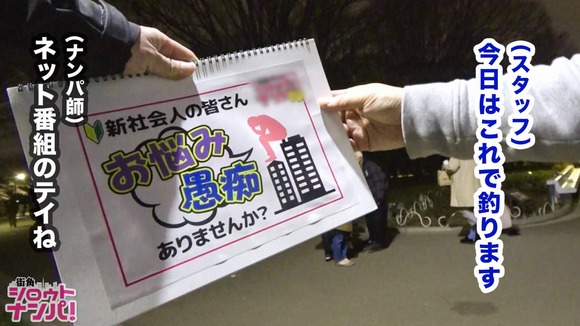 (スタッフ)
今日はこれで釣ります
(ナンパ師)
ネット番組のテイね
新社会人の皆さん
お悩み
愚痴
ありませんか?
街角
シロウト
ナンパ!